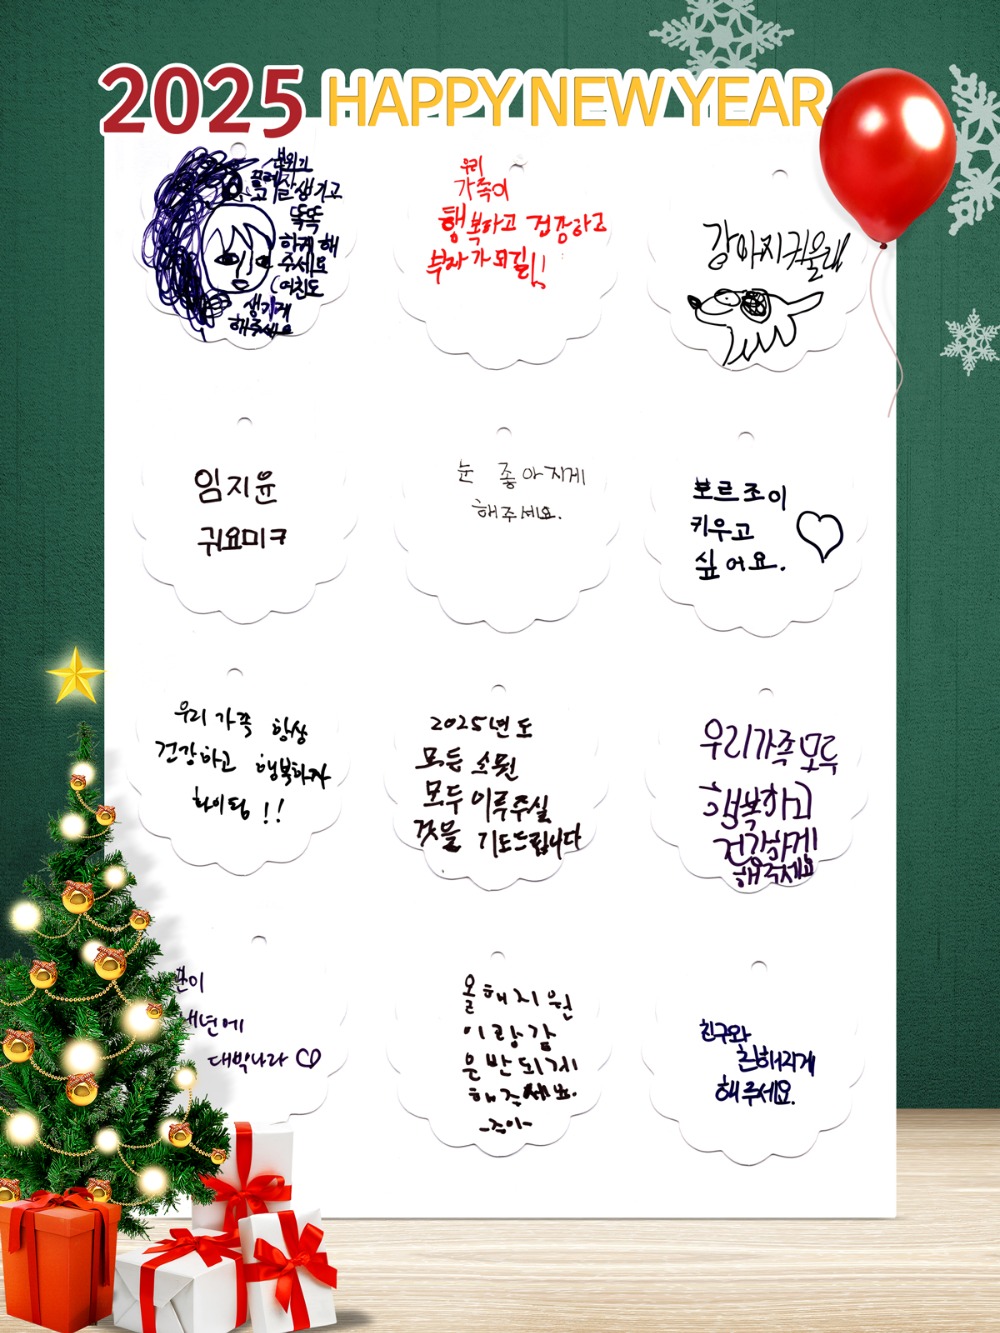 2025 HAPPY NEW YEAR
잘생기고
똑똑
하게 해
주세요
(여친도
생기게
해주세요
우리
가족이
행복하고 건강하고
부자가 되길!!
강아지키울래
임지윤
귀요미ㅋ
눈 좋아지게
해주세요.
보르조이
키우고
싶어요.
우리 가족 항상
건강하고 행복하자
화이팅!!
2025년도
모든 소원
모두 이루주실
것을 기도드립니다
우리가족 모두
행복하고
건강하게
해주세요
년에
대박나라
올해지원
이랑같
은반되게
해주세요.
친구와
친해지게
해주세요.